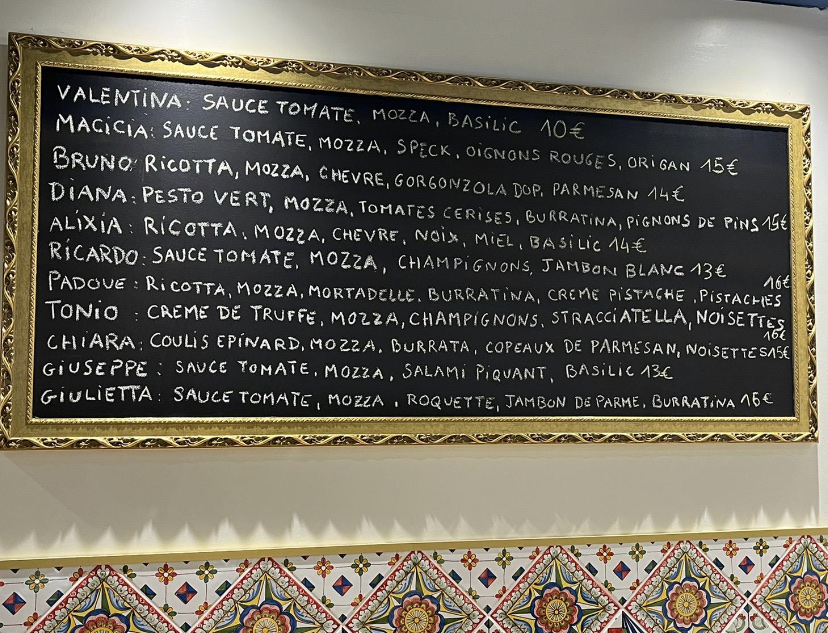 VALENTINA: SAUCE TOMATE, MOZZA, BASILIC 10€
MACICIA: SAUCE TOMATE, MOZZA, SPECK, OIGNONS ROUGES, ORIGAN 15€
BRUNO: RICOTTA, MOZZA, CHEVRE, GORGONZOLA DOP, PARMESAN 14€
DIANA: PESTO VERT, MOZZA, TOMATES CERISES, BURRATINA, PIGNONS DE PINS 15€
ALIXIA: RICOTTA, MOZZA, CHEVRE, NOIX, MIEL, BASILIC 14€
RICARDO: SAUCE TOMATE, MOZZA, CHAMPIGNONS, JAMBON BLANC 13€
PADOUE: RICOTTA, MOZZA, MORTADELLE, BURRATINA, CREME PISTACHE, PISTACHES 16€
TONIO: CREME DE TRUFFE, MOZZA, CHAMPIGNONS, STRACCIATELLA, NOISETTES 16€
CHIARA: COULIS EPINARD, MOZZA, BURRATA, COPEAUX DE PARMESAN, NOISETTES 15€
GIUSEPPE: SAUCE TOMATE, MOZZA, SALAMI PIQUANT, BASILIC 13€
GIULIETTA: SAUCE TOMATE, MOZZA, ROQUETTE, JAMBON DE PARME, BURRATINA 16€